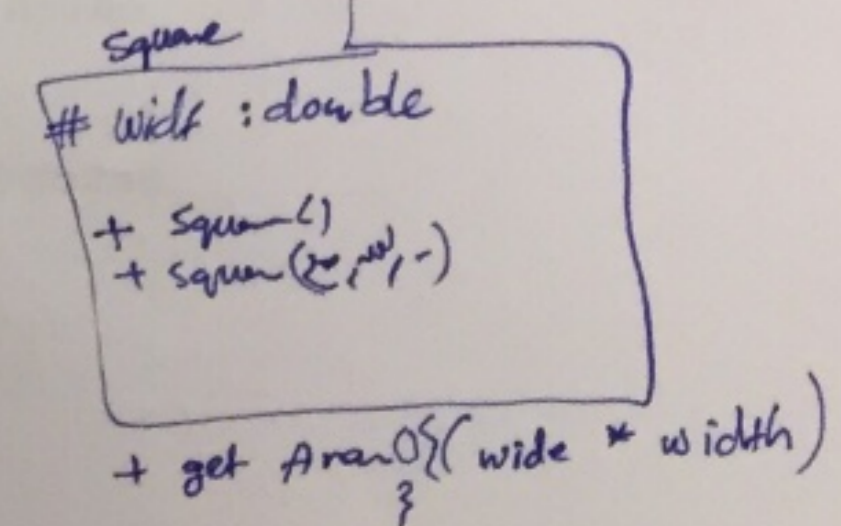 square
# widt : double
+ Square()
+ square(
+ get Area(){(wide * width)
}